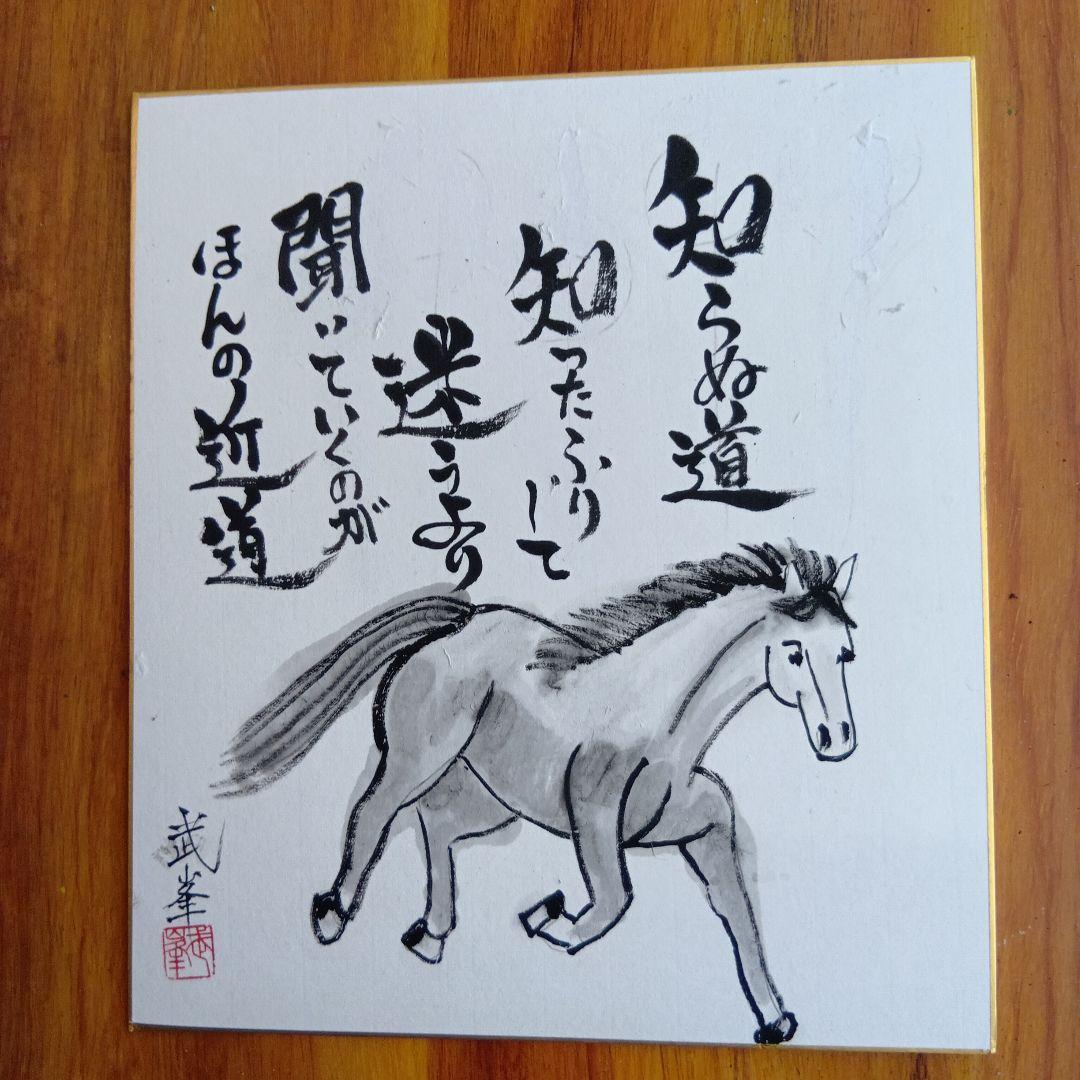 知らぬ道
知ったふりして
迷うより
聞いていくのが
ほんの近道
武峯